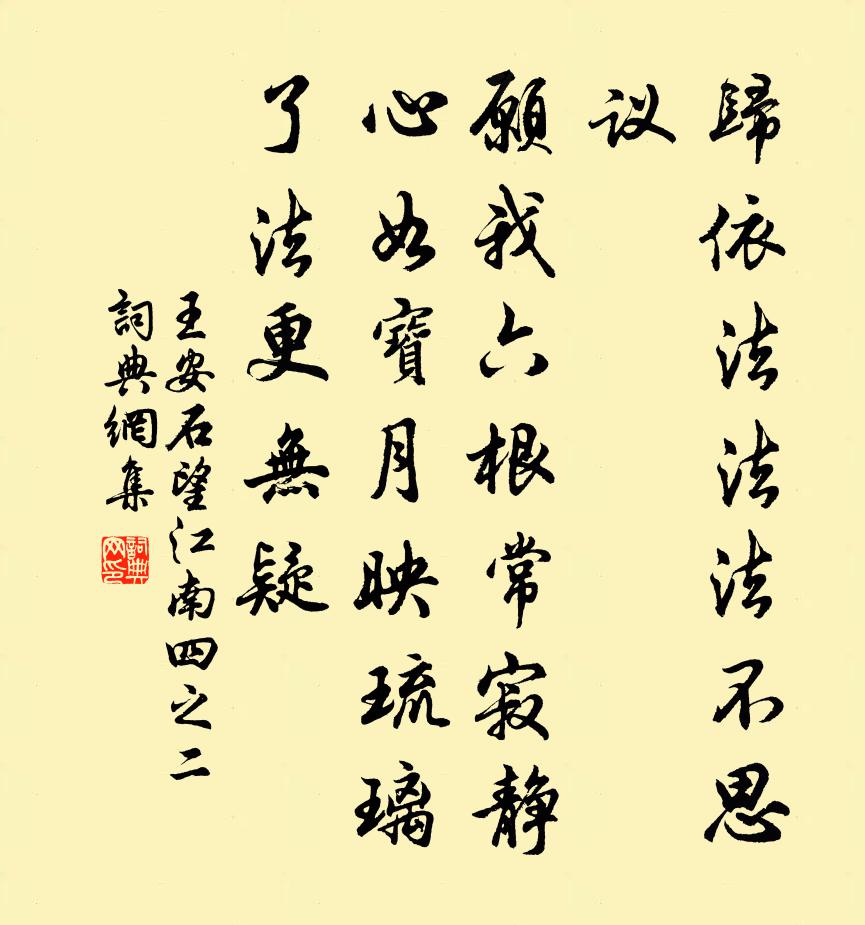 歸依法法法不思
议
願我六根常寂静
心如寶月映琉璃
了法更無疑
王安石望江南四之二
詞典網集
詞典網印